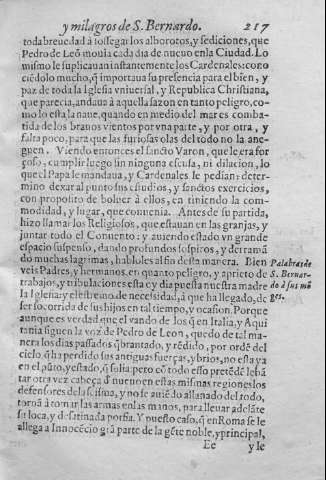 y milagros de S. Bernardo. 217
toda breuedad a sossegar los alborotos, y sediciones, que
Pedro de Leõ mouia cada dia de nueuo en la Ciudad. Lo
mismo le suplicauan instantemente los Cardenales: cono
ciẽdolo mucho, q̃ importaua su presencia para el bien, y
paz de toda la Iglesia vniuersal, y Republica Christiana,
que parecia, andaua à aquella sazon en tanto peligro, co-
mo lo esta la naue, quando en medio del mar es comba-
tida de los brauos vientos por vna parte, y por otra, y
falta poco, para que las furiosas olas del todo no la ane-
guen. Viendo entonces el sancto Varon, que le era for
çoso, cumplir luego sin ninguna escusa, ni dilacion, lo
que el Papa le mandaua, y Cardenales le pedian: deter-
mino dexar al punto sus estudios, y sanctos exercicios,
con proposito de boluer à ellos, en tiniendo la com-
modidad, y lugar, que conuenia. Antes de su partida,
hizo llamar los Religiosos, que estauan en las granjas, y
juntar todo el Conuento: y auiendo estado vn grande
espacio suspenso, dando profundos sospiros, y derramã
do muchas lagrimas, hablòles al fin desta manera. Bien
veis Padres, y hermanos, en quanto peligro, y aprieto de
trabajos, y tribulaciones esta oy dia puesta nuestra madre
la Iglesia: y el estremo de necessidad, à que ha llegado, de
ser socorrida de sus hijos en tal tiempo, y ocasion. Porque
aunque es verdad que el vando de los q̃ en Italia, y Aqui
tania siguen la voz de Pedro de Leon, quedo de tal ma-
nera los dias passados q̃brantado, y rẽdido, por ordẽ del
cielo q̃ ha perdido sus antiguas fuerças, y brios, no esta ya
en el pũto, y estado, q̃ solia: pero cõ todo esso pretẽdẽ leuã
tar otra vez cabeça de nueuo en estas mismas regiones los
defensores della scisma, y no se auiẽdo allanado del todo,
tornã à tomar las armas en las manos, para lleuar adelãte
su loca, y desatinada porfia. Y puesto caso, q̃ en Roma se le
allega a Innocẽcio grã parte de la gẽte noble, y principal,
Ee y le
Palabras de
S. Bernar-
do à sus mõ
ges.